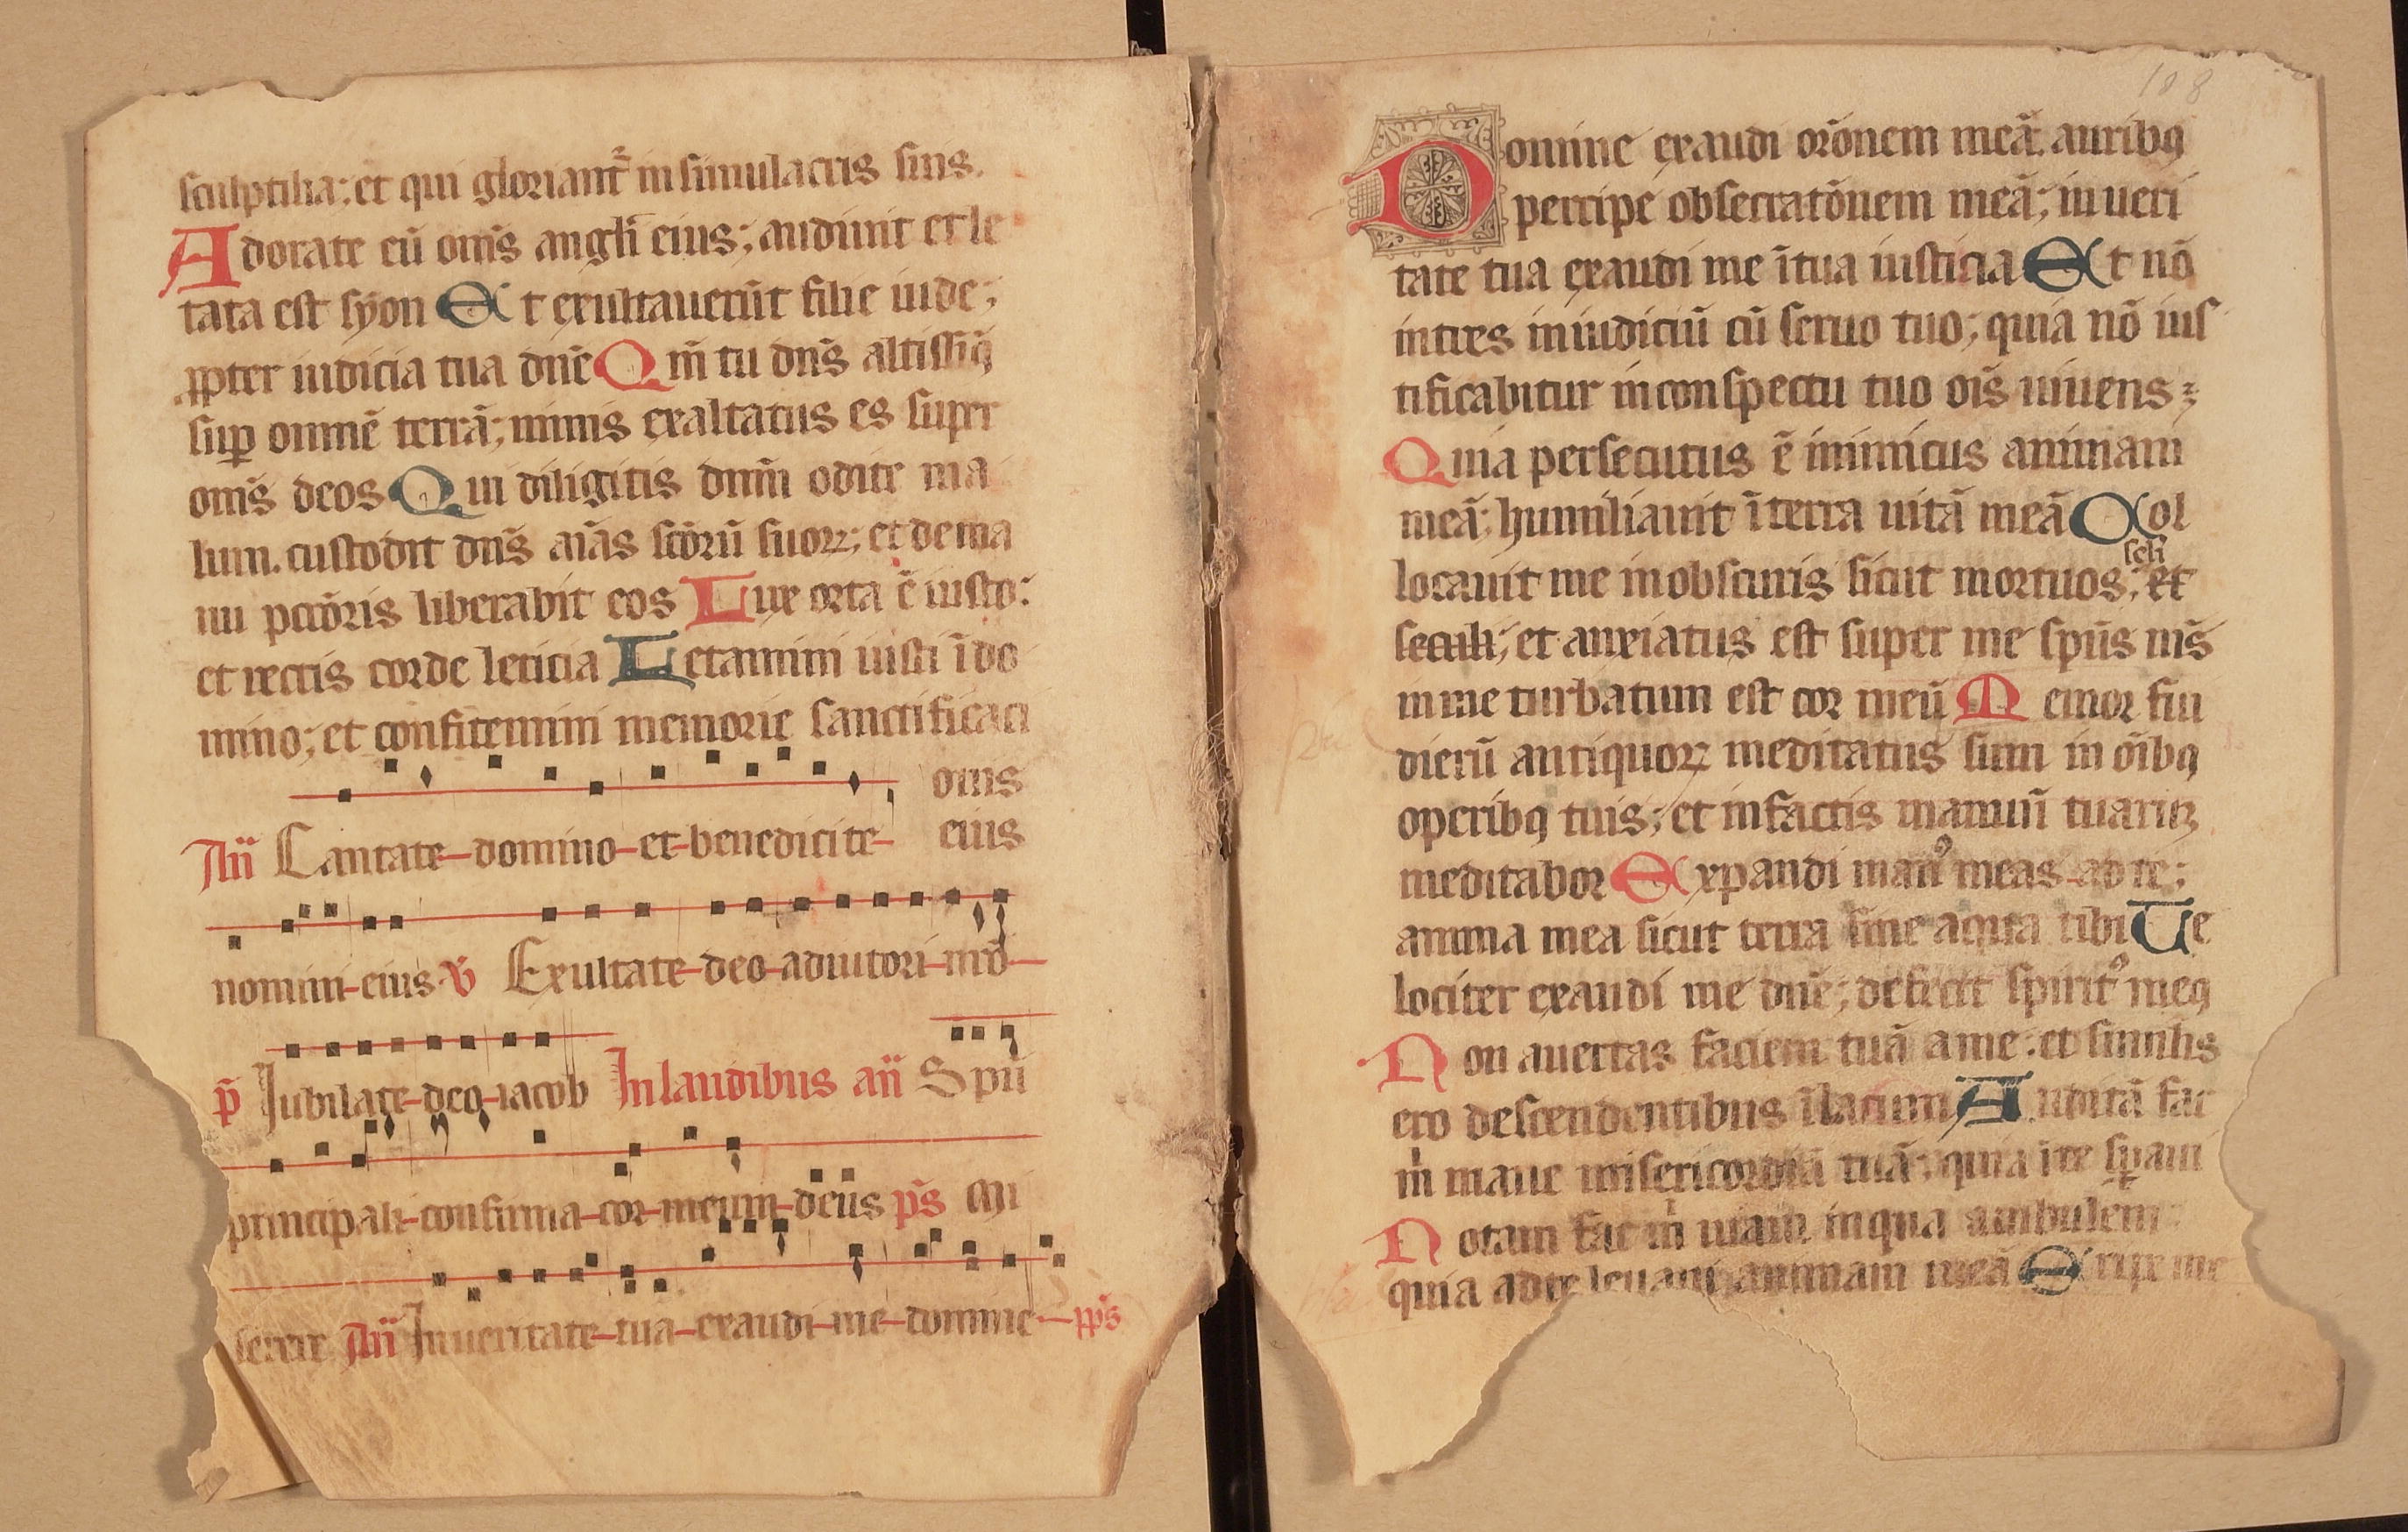 sculptilia; et qui gloriant᷑ in simulacris suis.
Adorate eū om̄s angl̄i eius; audiuit et le
tata est syon Et exultauerūt filie iude;
ꝓpter iudicia tua dn̄e Qm̄ tu dn̄s altissiꝰ
suꝑ omnē terrā; nimis exaltatus es super
om̄s deos Qui diligitis dnm̄ odite ma
lum. custodit dn̄s aīas sc̄orū suoꝝ; et de ma
nu pcc̄oris liberabit eos Lux orta ē iusto:
et rectis corde leticia Letamini iusti ī do
mino; et confitemini memorie sanctificaci
onis
An̄ Cantate domino et benedicite eius
nomini eius v̄ Exultate deo adiutori nr̄o
p̄ Jubilate deo iacob In laudibus an̄ Spū
principali confirma cor meum deus ps̄ Mi
serere An̄ In ueritate tua exaudi me domine pp̄s
108
Domine exaudi orōnem meā. auribꝰ
percipe obsecratōnem meā; in ueri
tate tua exaudi me ī tua iusticia Et nō
intres in iudiciū cū seruo tuo; quia nō ius
tificabitur in conspectu tuo oīs uiuens;
Quia persecutus ē inimicus animam
meā; humiliauit ī terra uitā meā Col
locauit me in obscuris sicut mortuos; et
secli
seculi; et anxiatus est super me spūs ms̄
in me turbatum est cor meū Memor fui
dierū antiquoꝝ meditatus sum in oībꝰ
operibꝰ tuis; et in factis manuū tuaruꝫ
meditabor Expandi manꝰ meas ad te;
anima mea sicut terra sine aqua tibi Ve
lociter exaudi me dn̄e; defecit spiritꝰ meꝰ
Non auertas faciem tuā a me: et similis
ero descendentibus ī lacum Auditā fac
m̄ mane misericordiā tuā; quia ī te sꝑaui
Notam fac m̄ uiam in qua ambulem:
quia ad te leuaui animam meā Eripe me